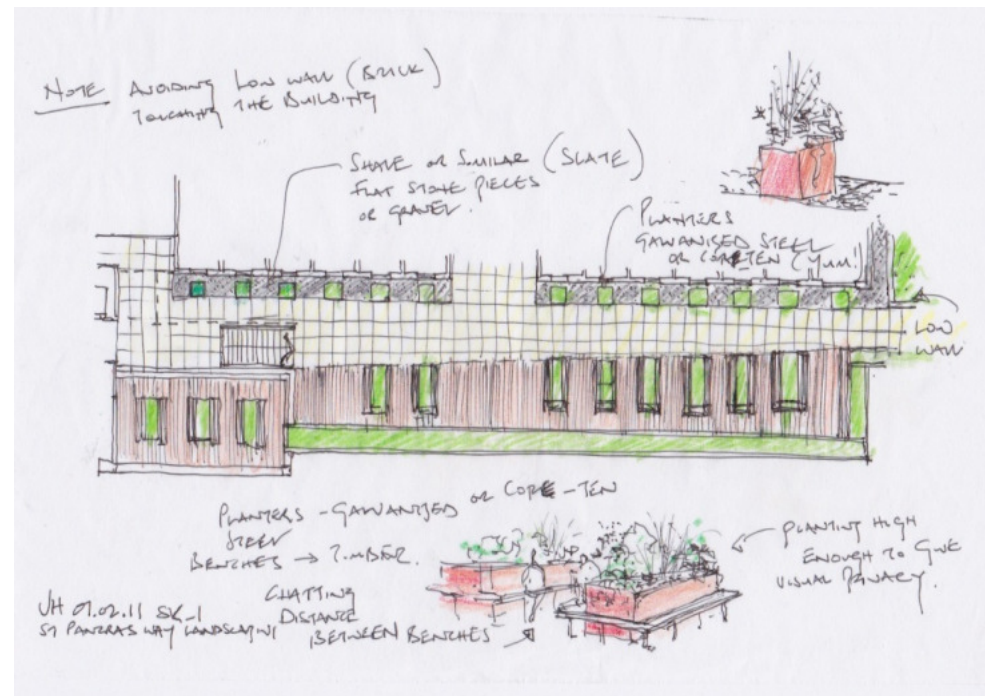 NOTE AVOIDING LOW WALL (BRICK)
TOUCHING THE BUILDING
SHALE OR SIMILAR (SLATE)
FLAT STONE PIECES
OR GRAVEL.
PLANTERS
GALVANISED STEEL
OR CORTEN (YUM!
LOW
WALL
PLANTERS - GALVANISED OR CORE-TEN
STEEL
BENCHES → TIMBER.
CHATTING
DISTANCE
BETWEEN BENCHES
PLANTING HIGH
ENOUGH TO GIVE
VISUAL PRIVACY.
JH 01.02.11 SK_1
ST PANCRAS WAY LANDSCAPING